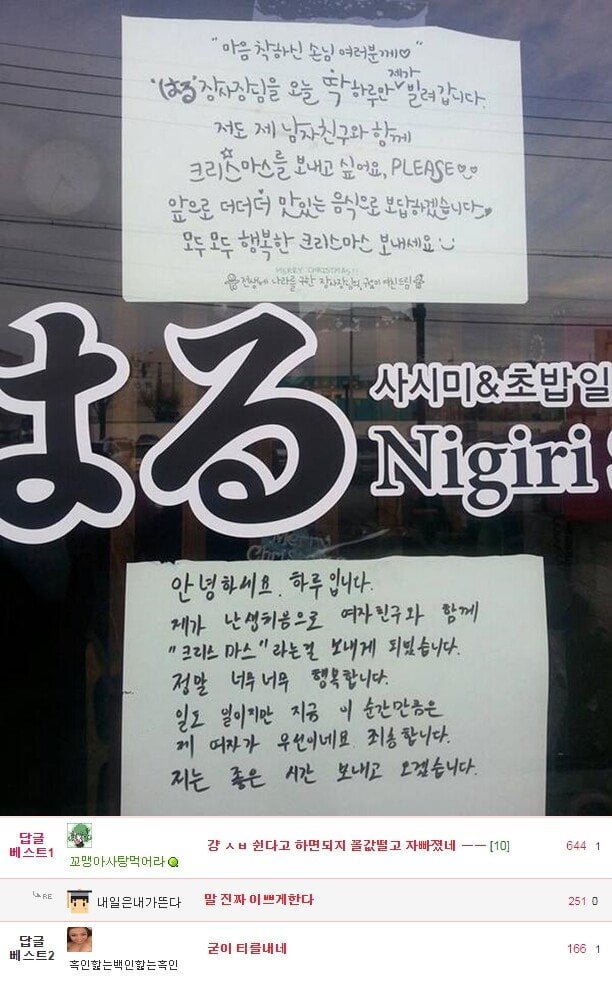 "마음 착하신 손님 여러분께♡"
'はる' 장사장님을 오늘 딱 하루만 제가 빌려 갑니다.
저도 제 남자친구와 함께
크리스마스를 보내고 싶어요, PLEASE♡♡
앞으로 더더더 맛있는 음식으로 보답하겠습니다
모두 모두 행복한 크리스마스 보내세요
MERRY CHRISTMAS!!
전생에 나라를 구한 장사장님의 여친드림
はる
사시미&초밥일
Nigiri
안녕하세요. 하루입니다.
제가 난생처음으로 여자친구와 함께
"크리스마스"라는걸 보내게 되었습니다.
정말 너무너무 행복합니다.
일도 일이지만 지금 이 순간만큼은
제 여자가 우선이네요 죄송합니다.
저는 좋은 시간 보내고 오겠습니다.
답글 베스트1
꼬맹아사탕먹어라
걍 ㅅㅂ 쉰다고 하면되지 꼴값떨고 자빠졌네 ㅡㅡ [10]
644 1
RE
내일은내가뜬다
말 진짜 이쁘게한다
251 0
답글 베스트2
흑인핥는백인핥는흑인
굳이 티를내네
166 1